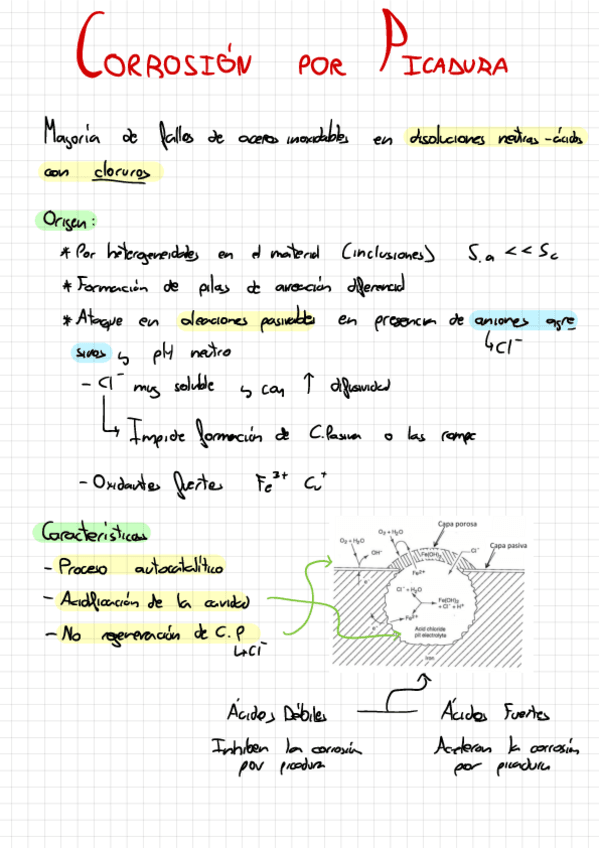 CORROSIÓN POR PICADURA
Mayoría de fallos de aceros inoxidables en disoluciones neutras-ácidas
con cloruros
Origen:
* Por heterogeneidades en el material (inclusiones) S.a << Sc
* Formación de pilas de aireación diferencial
* Ataque en aleaciones pasivables en presencia de aniones agre
sivos ↳ pH neutro
↳ Cl⁻
- Cl⁻ muy soluble ↳ con ↑ difusividad
↳ Impide formación de C.Pasiva o las rompe
- Oxidantes fuertes Fe³⁺ Cu⁺
Características
- Proceso autocatalítico
- Acidificación de la cavidad
- No regeneración de C.P
↳ Cl⁻
Capa porosa
Capa pasiva
O₂+H₂O
O₂+H₂O
OH⁻
Fe(OH)₃
Cl⁻
Fe²⁺
Cl⁻+H₂O
Fe(OH)₂
+ Cl⁻ + H⁺
e⁻
Fe²⁺
e⁻
Acid chloride
pit electrolyte
Iron
Ácidos Débiles
Ácidos Fuertes
Inhiben la corrosión
por picadura
Aceleran la corrosión
por picadura